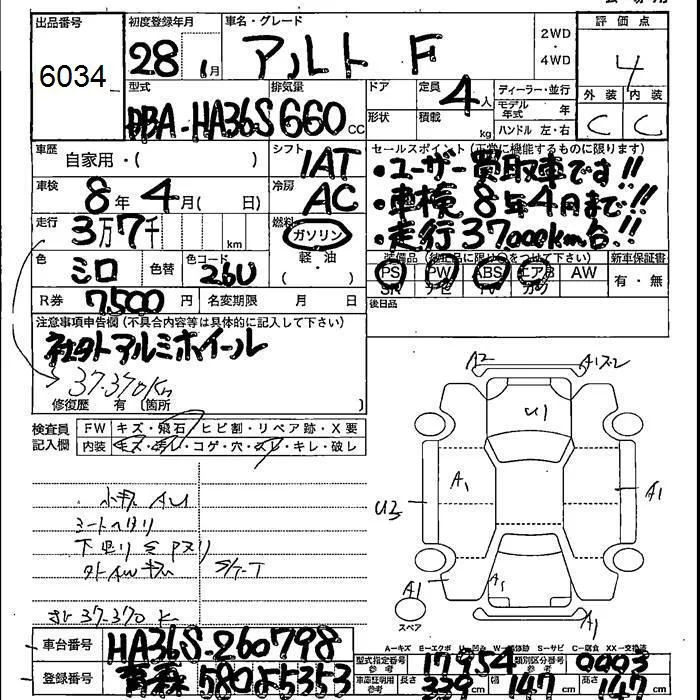 出品番号 初度登録年月 車名・グレード 評価点
6034 28 1月 アルト F 2WD・4WD 4
外装 内装
C C
型式 排気量 ドア 定員 ディーラー・並行
DBA-HA36S 660cc 4人 モデル年式 年
形状 積載 kg ハンドル 左・右
車歴 自家用・( ) シフト 1AT セールスポイント(正常に機能するものに限ります)
・ユーザー買取車です!!
車検 8年4月( 日) 冷房 AC ・車検8年4月まで!!
走行 3万7千 km 燃料 ガソリン ・走行37000km台!!
軽・油
( )
色 ミロ 色替 色コード 26U
装備品(純正品に限り○をつけて下さい) 新車保証書
PS PW ABS エアB AW 有・無
SR ナビ TV カワ
R券 7,500円 名変期限 月 日 後日品
注意事項申告欄(不具合内容等は具体的に記入して下さい)
社外アルミホイール
37,370Km
修復歴 有 〔箇所 〕
検査員記入欄 FW キズ・飛石・ヒビ割・リペア跡・X要
内装 キズ・汚レ・コゲ・穴・スレ・キレ・破レ
小キズ AU
シートヘタリ
下廻りサビ
S/T-T
37,370 K
A2 A1 U1 A1 U3 A1 A1 A1
スペア
A-キズ E-エクボ U-凹み W-補修跡 S-サビ C-腐食 XX-交換済
車台番号 HA36S-260798 型式指定番号 参考 17954 類別区分番号 参考 0003
登録番号 青森 580 55353 車庫証明用 参考 長さ 339cm 幅 147cm 高さ 147cm